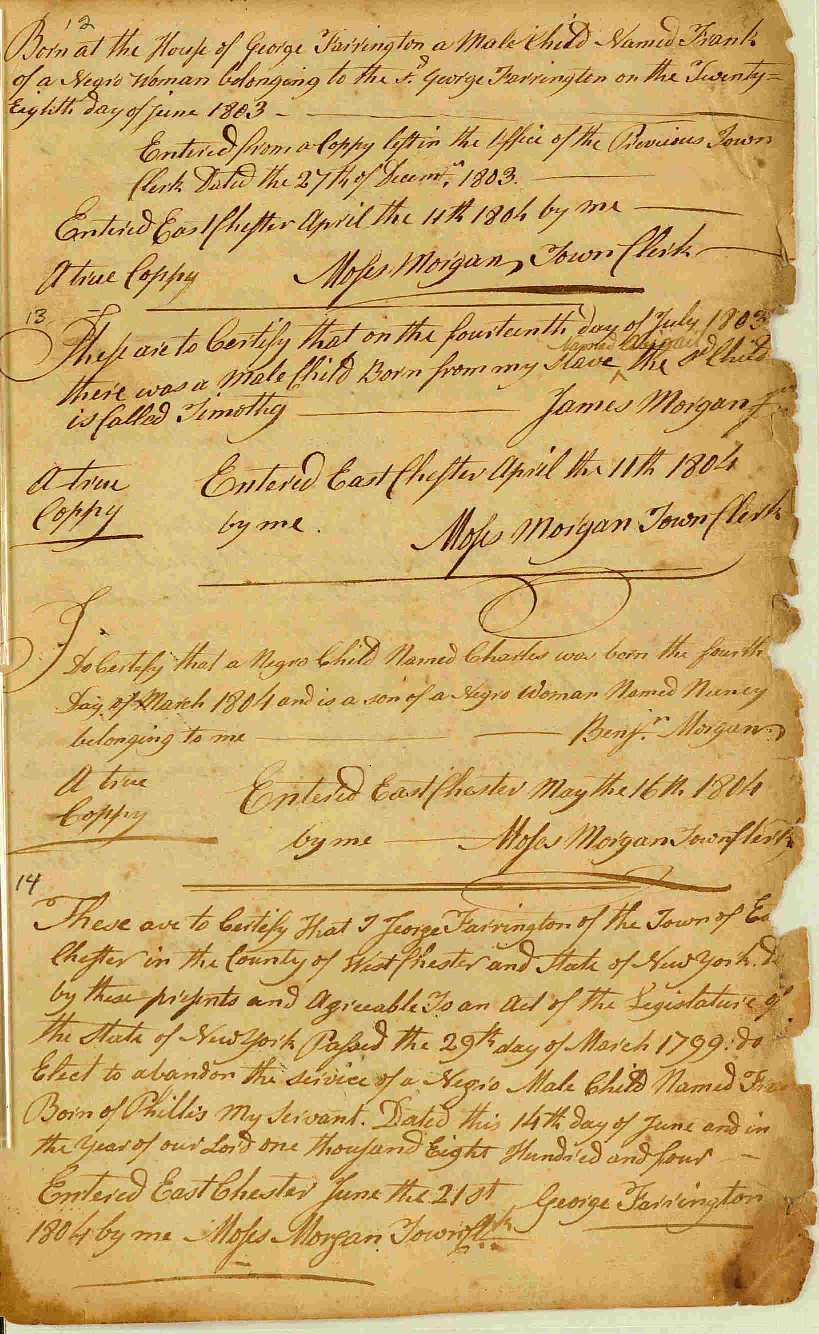 12
Born at the House of George Farrington a Male Child Named Frank
of a Negro Woman belonging to the sd. George Farrington on the Twenty=
Eighth day of June 1803
Entered from a Coppy left in the Office of the Previous Town
Clerk Dated the 27th of Decemr. 1803.
Entered East Chester April the 11th 1804 by me
A true Coppy Moses Morgan, Town Clerk
13
These are to Certify that on the fourteenth day of July 1803
Named Abigail
there was a Male Child Born from my Slave ^ the sd Child
is Called Timothy James Morgan Jr
A true Entered East Chester April the 11th 1804
Coppy by me. Moses Morgan Town Clerk
I
Do Certify that a Negro Child Named Charles was born the fourth
Day of March 1804 and is a son of a Negro Woman Named Nancy
belonging to me Benjn. Morgan
A true Entered East Chester May the 16th 1804
Coppy by me Moses Morgan Town Clerk
14
These are to Certify that I George Farrington of the Town of Ea
Chester in the County of West Chester and State of New York. do
by these presents and Agreeable To an Act of the Legislature of
the State of New York Passed the 29th day of March 1799. do
Elect to abandon the service of a Negro Male Child Named Fra
Born of Phillis my Servant. Dated this 14th day of June and in
the Year of our Lord one thousand Eight Hundred and four
Entered East Chester June the 21st George Farrington
1804 by me Moses Morgan Town Clk